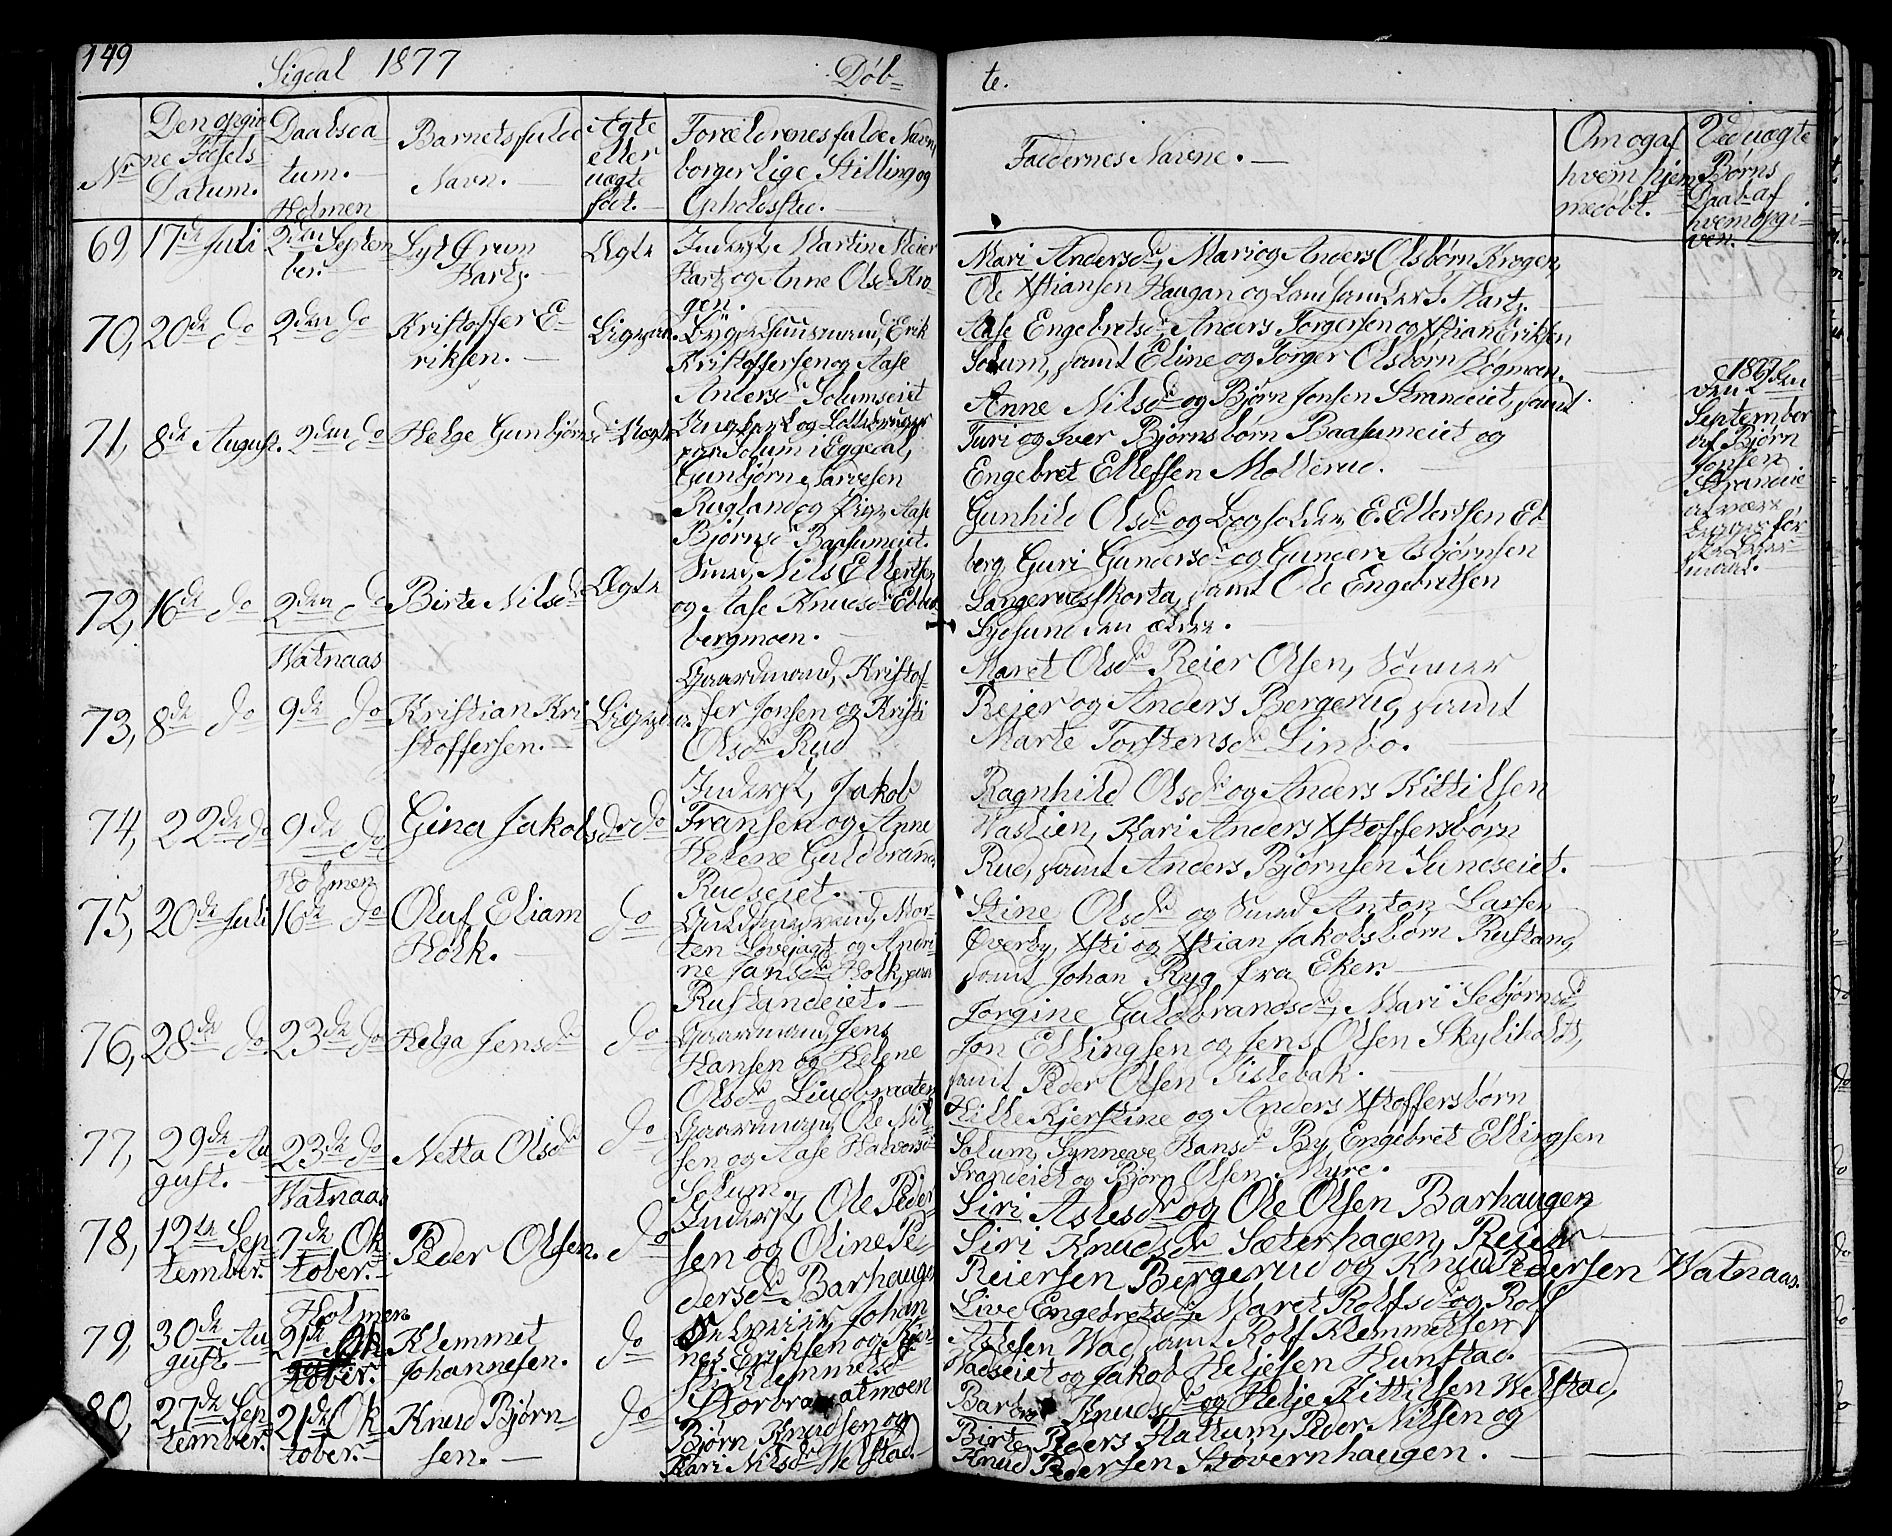 149
Sigdal 1877
Døb-
te.
Nr
Den opgiv
ne Fødsels-
Datum.
Daabsda
tum.
Holmen
Barnets fulde
Navn.
Ægte
eller
uægte
født.
Forældrenes fulde Navn,
borgerlige Stilling og
Opholdsted.
Faddernes Navne.
Om og af
hvem hjem
medøbt.
Ved uægte
Børns
Daab af
hvem opgi-
ven.
69, 17de Juli
2den Septem
ber.
Hartz.
Ægte
Inderst Martin Meier
Hartz og Anne Olsd Kro-
gen.
Mari Andersd, Mari og Anders Olsbørn Krogen,
Ole Xstiansen Haugan og Hartz.
70, 20de do
2den do
Kristoffer E-
riksen.
Erik
Kristoffersen og Aase
Andersd Solumseiet
Aase Engebretsd, Anders Torgersen og Xstian Eriksen
Solum, samt Eline og Torger Olsbørn Høgmoen.
71, 8de August.
2den do
Helge Gunbjørnsd
Uægte
Ungkarl og
Solum i Eggedal,
Gunbjørn Narvesen
Rugland og Pige Aase
Bjørnsd Baasumeiet.
Anne Nilsd og Bjørn Jonsen Strandeiet, samt
Turi og Iver Bjørnsbørn Baasumeiet og
Engebret Ellefsen Mollerud.
1877 den
September
af Bjørn
Jonsen
Strandeie
at være
72, 16de do
2den do
Birte Nilsd
Ægte
Smed, Nils Ellertsen
og Aase Knudsd Eb
bergmoen.
Gunhild Olsd og E. Ellertsen Eb
berg, Guri Gundersd og Gunder Asbjørnsen
Langerudskorta, samt Ole Engebretsen
Lydsund den ældre.
Watnaas
73, 8de do
9de do
Kristian Kri
stoffersen.
Gaardmand, Kristof-
fer Jonsen og Kristi
Olsd Rud
Maret Olsd Reier Olsen, Sønner
Reier og Anders Bergerud, samt
Marte Torstensd Linbo.
74, 22de do
9de do
Gina Jakobsd
do
Inderst, Jakob
Fransen og Anne
Helene Guldbrand.
Rudseiet.
Ragnhild Olsd og Anders Kittilsen
Waslien, Kari Anders Xstoffersbørn
Rud, samt Anders Bjørnsen Sundseiet.
Holmen
75, 20de Juli
16de do
Oluf Eliam
Holk.
do
Mor-
ten Lovejagt og Andri-
ne Jansd Holk, paa
Rustandeiet.
Stine Olsd og Smed Anton Larsen
Øverby, Xsti og Xstian Jakobsbørn Rustand,
samt Johan Ryg fra Eker.
76, 28de do
23de do
Helga Jensd
do
Gaardmand, Jens
Hansen og Helene
Olsd, Liudbraaten
Jørgine Guldbrandsd, Mari Sebjørnsd,
Jon Ellingsen og Jens Olsen Skyliholdt,
samt Peder Olsen Tislebak.
77, 29de Au
gust.
23de do
Netta Olsd
do
Gaardmand, Ole Nil
sen og Aase Halvorsd
Solum.
Hille Kjerstine og Anders Xstoffersbørn
Solum, Synneve Hansd By, Engebret Ellingsen
Srandeiet og Bjørn Olsen Myre.
Watnaas
78, 12te Sep
tember.
7de Ok
tober.
Peder Olsen.
do
Inderst, Ole Peder
sen og Oline Pe-
dersd Barhaugen
Siri Aslesd og Ole Olsen Barhaugen
Siri Knudsd Sæterhagen, Reier
Reiersen Bergerud og Knud Pedersen Watnaas.
Holmen
79, 30de Au
gust.
21de Ok
tober.
Klemmet
Johannesen.
do
Johan
nes Eriksen og
Klemmetsd
Storbraatmoen
Live Engebretsd, Maret Rolfsd og Rolf
Aslesen Wad, samt Rolf Klemmetsen
Wadseiet og Jakob Heljesen Hunstad.
80, 27de Sep
tember.
21de Ok
tober.
Knud Bjørn-
sen.
do
Bjørn Knudsen og
Kari Nilsd Welstad.
Barbro Knudsd og Helje Kittilsen Welstad,
Birte Peders Hattum, Peder Nilsen og
Knud Pedersen Stovernhaugen.